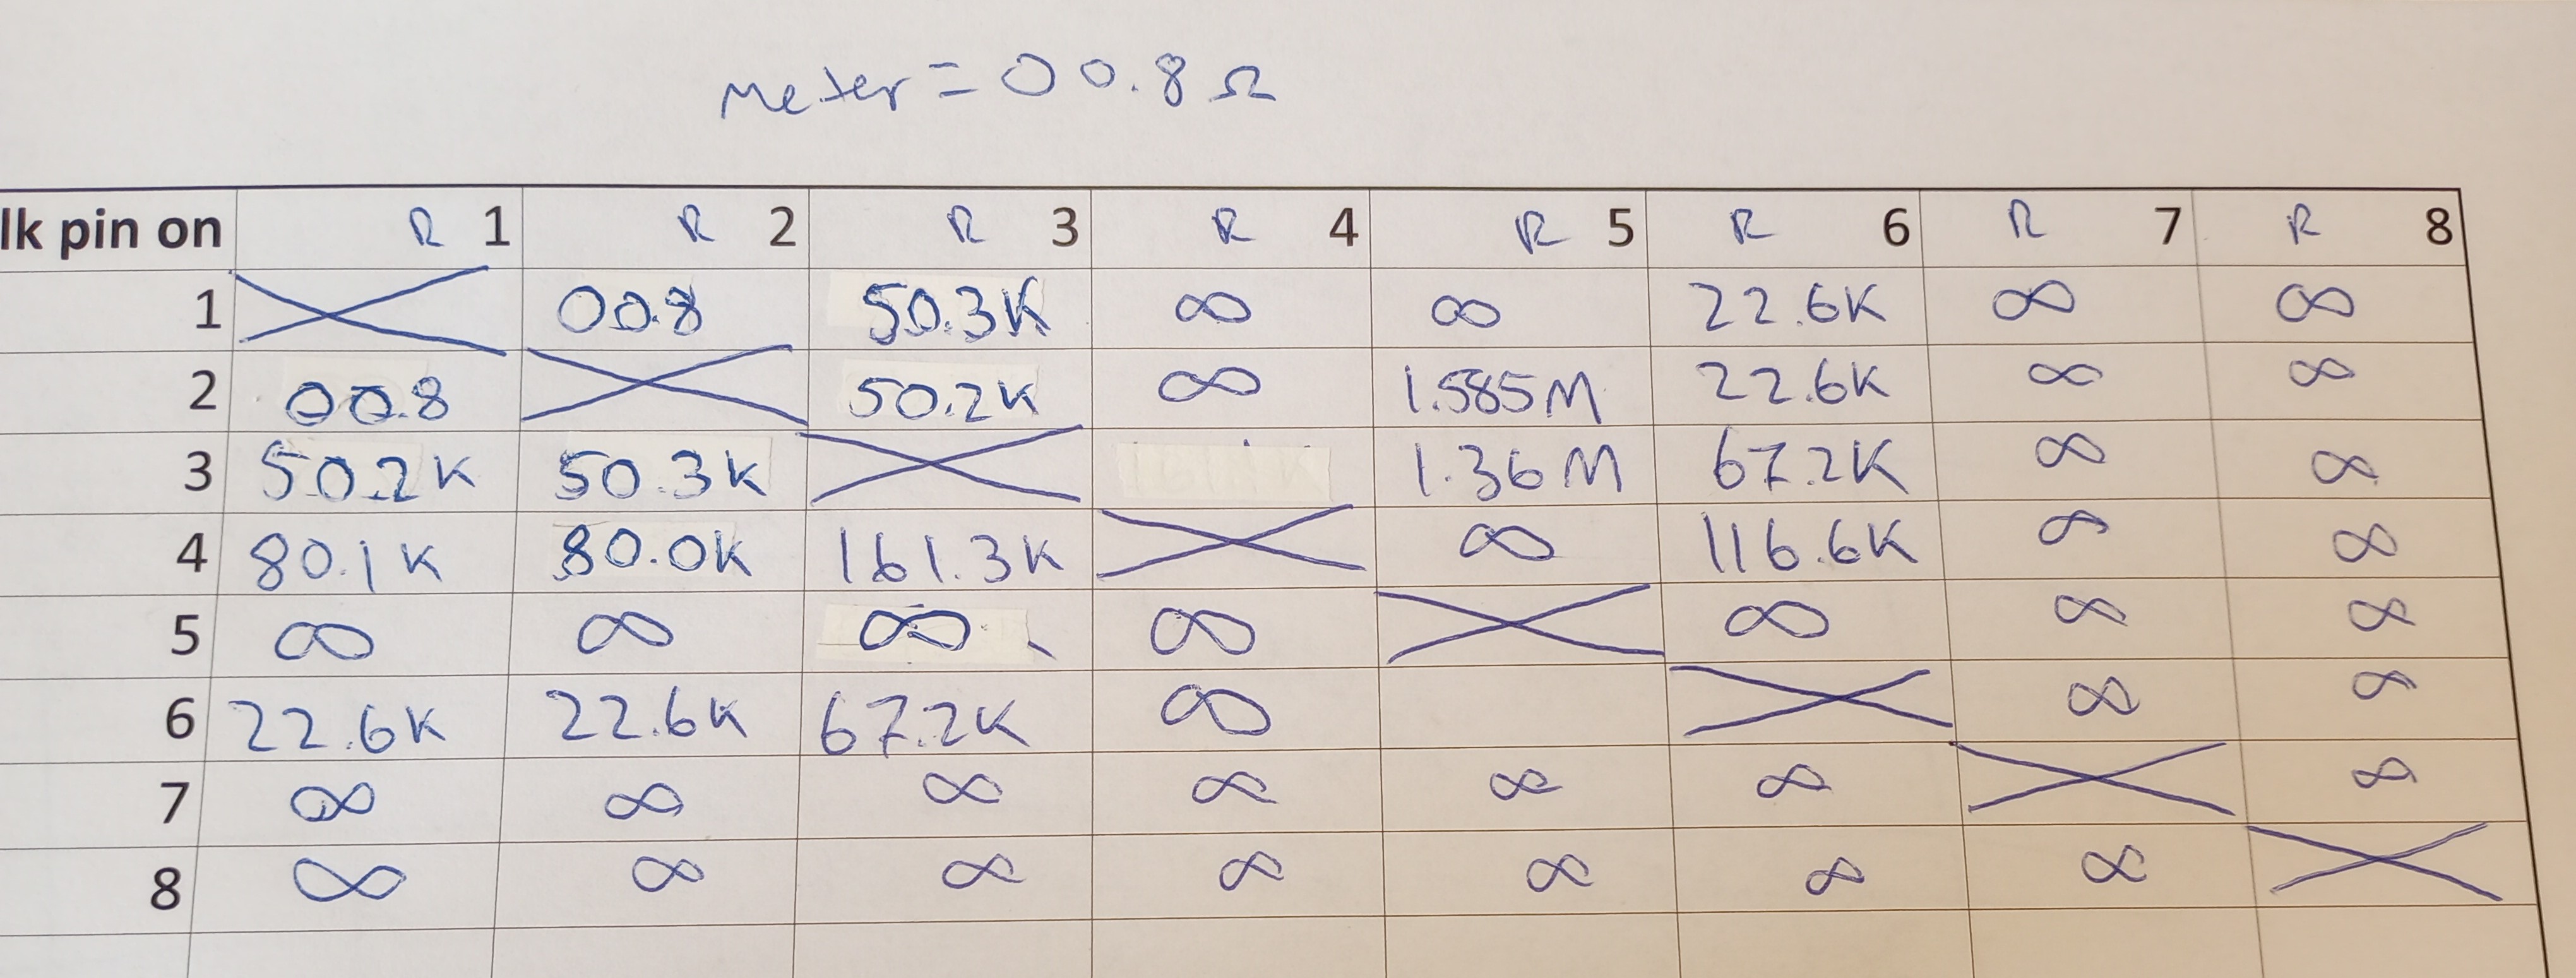 Meter = 00.8 Ω
lk pin on R 1 R 2 R 3 R 4 R 5 R 6 R 7 R 8
1 00.8 50.3K ∞ ∞ 22.6K ∞ ∞
2 00.8 50.2K ∞ 1.585M 22.6K ∞ ∞
3 50.2K 50.3K 1.36M 67.2K ∞ ∞
4 80.1K 80.0K 161.3K ∞ 116.6K ∞ ∞
5 ∞ ∞ ∞ ∞ ∞ ∞ ∞
6 22.6K 22.6K 67.2K ∞ ∞ ∞
7 ∞ ∞ ∞ ∞ ∞ ∞ ∞
8 ∞ ∞ ∞ ∞ ∞ ∞ ∞